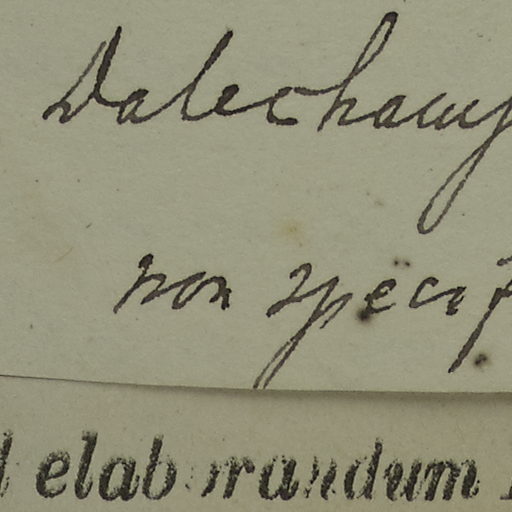 Dalechamp
non specif
d elaborandum